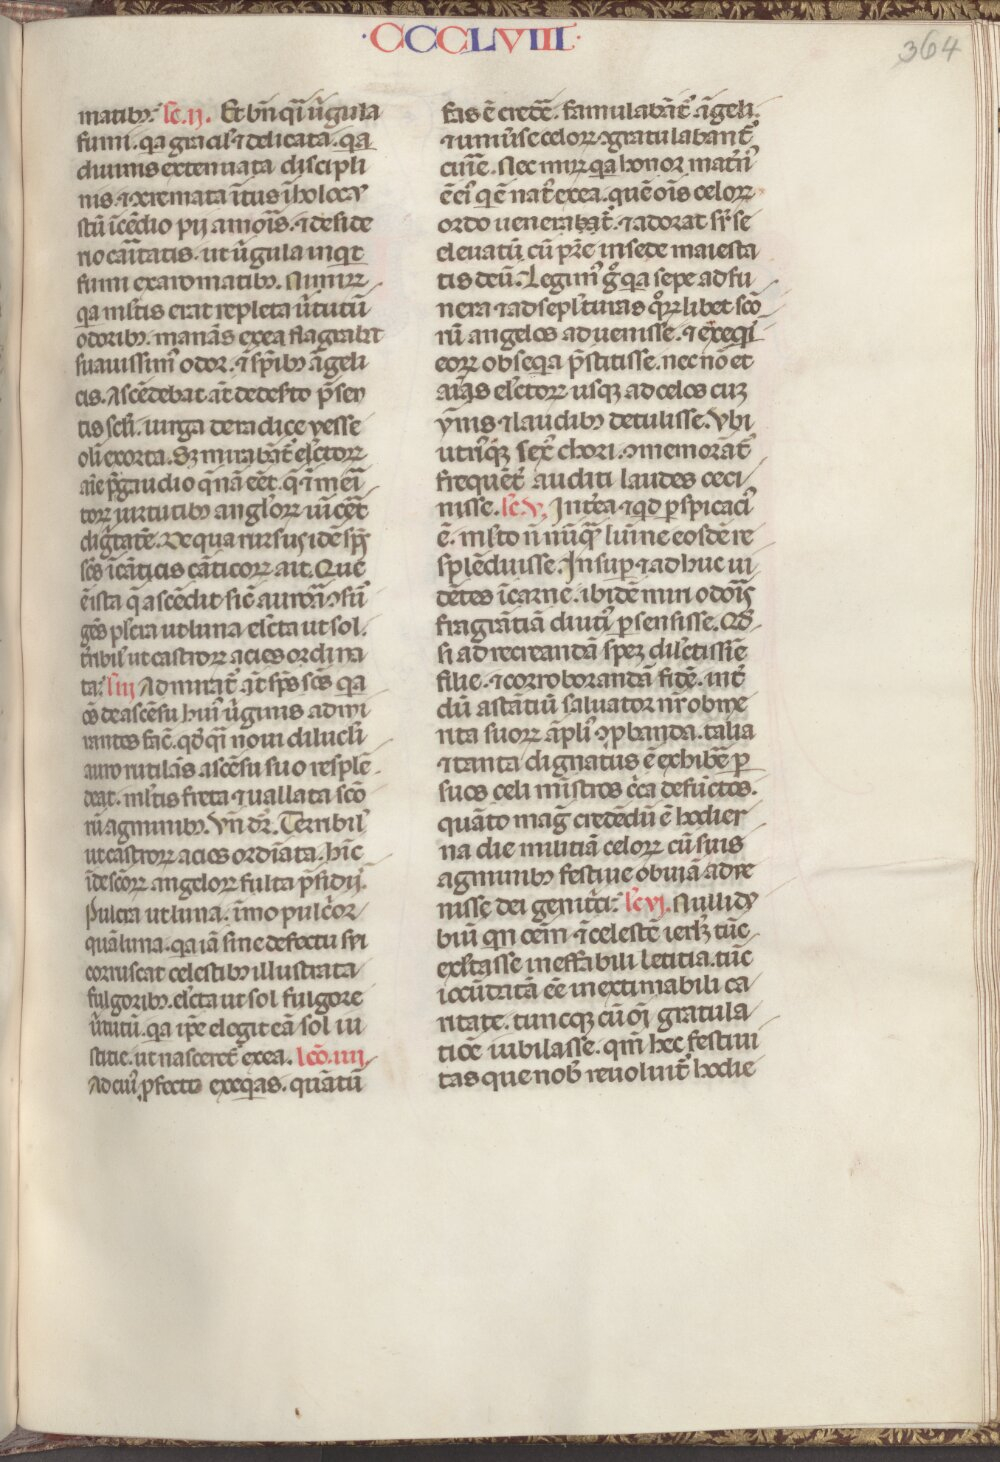 ·CCCLVIII·
364
matibꝫ. lc̄.ij. Et bn̄ q̄i ūgula
fumi. qa gracil' ⁊ delicata. qa
diuinis extenuata discipli
nis. ⁊ 9cremata ītus ī holocau
stū īcēdio pij amoīs. ⁊ deside
rio caītatis. ut ūgula inqt
fumi ex aromatibꝫ. Nimirꝝ
qa ml'tis erat repleta ūtutū
odoribꝫ. manās ex ea flagrabit
suauissim' odor. ⁊ sp̄ibꝫ āgeli
cis. Ascēdebat āt de deserto p̄sen
tis scl'i. uirga de radice yesse
oli exorta. Sꝫ mirabāt' el'ctorꝝ
aīe p̄ gaudio q̄nā eēt. q̄ ⁊ meī
torꝝ uirtutibꝫ angl'orꝝ uīcēt
dig̅tatē. De qua rursus idē sp̄s
scs̄ ī cāticis cāticorꝝ ait. Que
ē ista q̄ ascēdit sic̄ aurora 9sur
gēs pl'cra ut luna el'cta ut sol.
t'ribil' ut castrorꝝ acies ordina
ta. l'iij Admirat' āt sp̄s scs̄ qa
oēs de ascēsu hui' ūginis admi
rantes fac̄. qd' q̄i noui diluc̄li
auro rutilās ascēsu suo resplē
deat. ml'tis freta ⁊ uallata scō
rū agminibꝫ. Vn̄ dr̄. Terribil'
ut castrorꝝ acies ordīata. hīc
īde scōrꝝ angelorꝝ fulta p̄sidij.
Pulcra ut luna. īmo pulc̄ior
quā luna. qa iā sine defectu sui
coruscat celestibꝫ illustrata
fulgoribꝫ. el'cta ut sol fulgore
ūtutū. qa ip̄e elegit eā sol iu
stitie. ut nasceret' ex ea. lcō.iiij.
Ad cui' ꝓfecto exeqas. quātū
fas ē credē. famulabāt' āgeli.
⁊ uniūse celorꝝ 9gratulabant'
curie. Nec mirꝝ qa honor mat'n'
ē ei' q̄ē nat' ex ea. quē oīs celorꝝ
ordo uenerabat'. ⁊ adorat sr̄ se
eleuatū cū pr̄e in sede maiesta
tis deū. Legim' g° qa sepe ad fu
nera ⁊ ad sepl'turas q°rꝝlibet scō
rū angelos aduenisse. ⁊ exeqi
eorꝝ obseqa p̄stitisse. nec nō et
aīas el'ctorꝝ usqꝫ ad celos cuꝫ
ymis ⁊ laudibꝫ detulisse. Vbi
utri'qꝫ sex' chori. 9memorāt'
frequēt' auditi laudes ceci
nisse. l'c.V. Int'ea ⁊ qd' perspicaci'
ē. ml'to n̄ nūqꝫ lumīe eosdē re
splēduisse. Insuꝑ ⁊ adhuc ui
dētes ī carne. ibidē miri odoīs
fragrātiā diuti' ꝑsensisse. Qd'
si ad recreandā speꝫ dil'ctissīe
filie. ⁊ corroborandā fidē. int'
dū astātiū saluator nr̄ ob me
rita suorꝝ āpli' ꝓbanda. talia
⁊ tanta dignatus ē exhibē ꝑ
suos celi ministros c̄ca defūctos.
quāto mag' credēdū ē hodier
na die militiā celorꝝ cū suis
agminibꝫ festiue obuiā adue
nisse dei genit'ci. l'c.vj. Nulli du
biū qn oēm ⁊ celestē ierl'm tūc
exl'tasse ineffabili letitia. tūc
iocūdatā eē inextimabili ca
ritate. tuncqꝫ cū oī gratula
tiōe iubilasse. qm̄ hec festiui
tas que nob' reuoluit' hodie